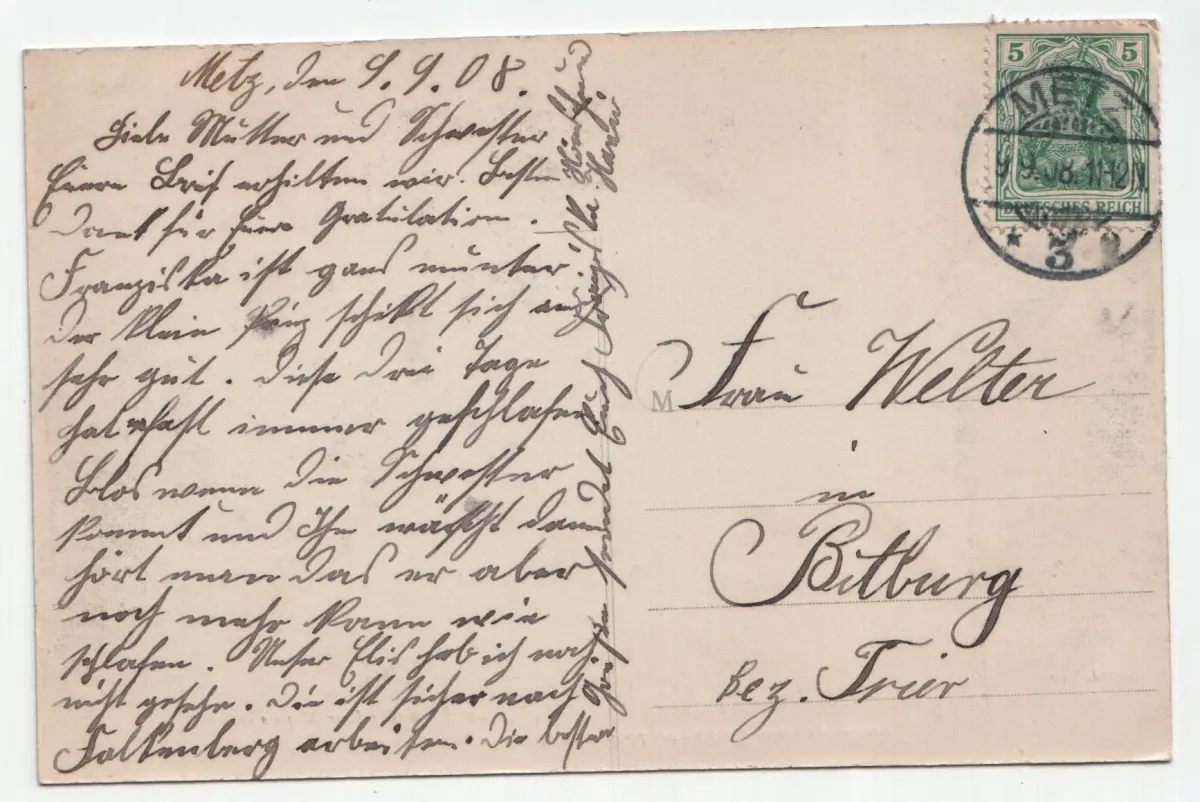 Metz, den 9.9.08.
Liebe Mutter und Schwester
Euere Brief erhilten wir. Besten
Dank für Euere Gratulation.
Franziska ist ganz munter.
der klein Prinz schikt sich auch
sehr gut. Diese drei Tage
hat er fast immer geschlafen
Blos wenn die Schwester
kommt und Ihn wäscht dann
hört man das er aber
noch mehr kann wie
schlafen. Unser Elis hab ich noch
nicht gesehn. Die ist sicher nach
Falkenberg arbeiten. Die besten
Grüße sendet Euch Franziska
5 5
DEUTSCHES REICH
METZ
9.9.08.11-12N
* 3
M
Frau Welter
in
Bitburg
bez. Trier